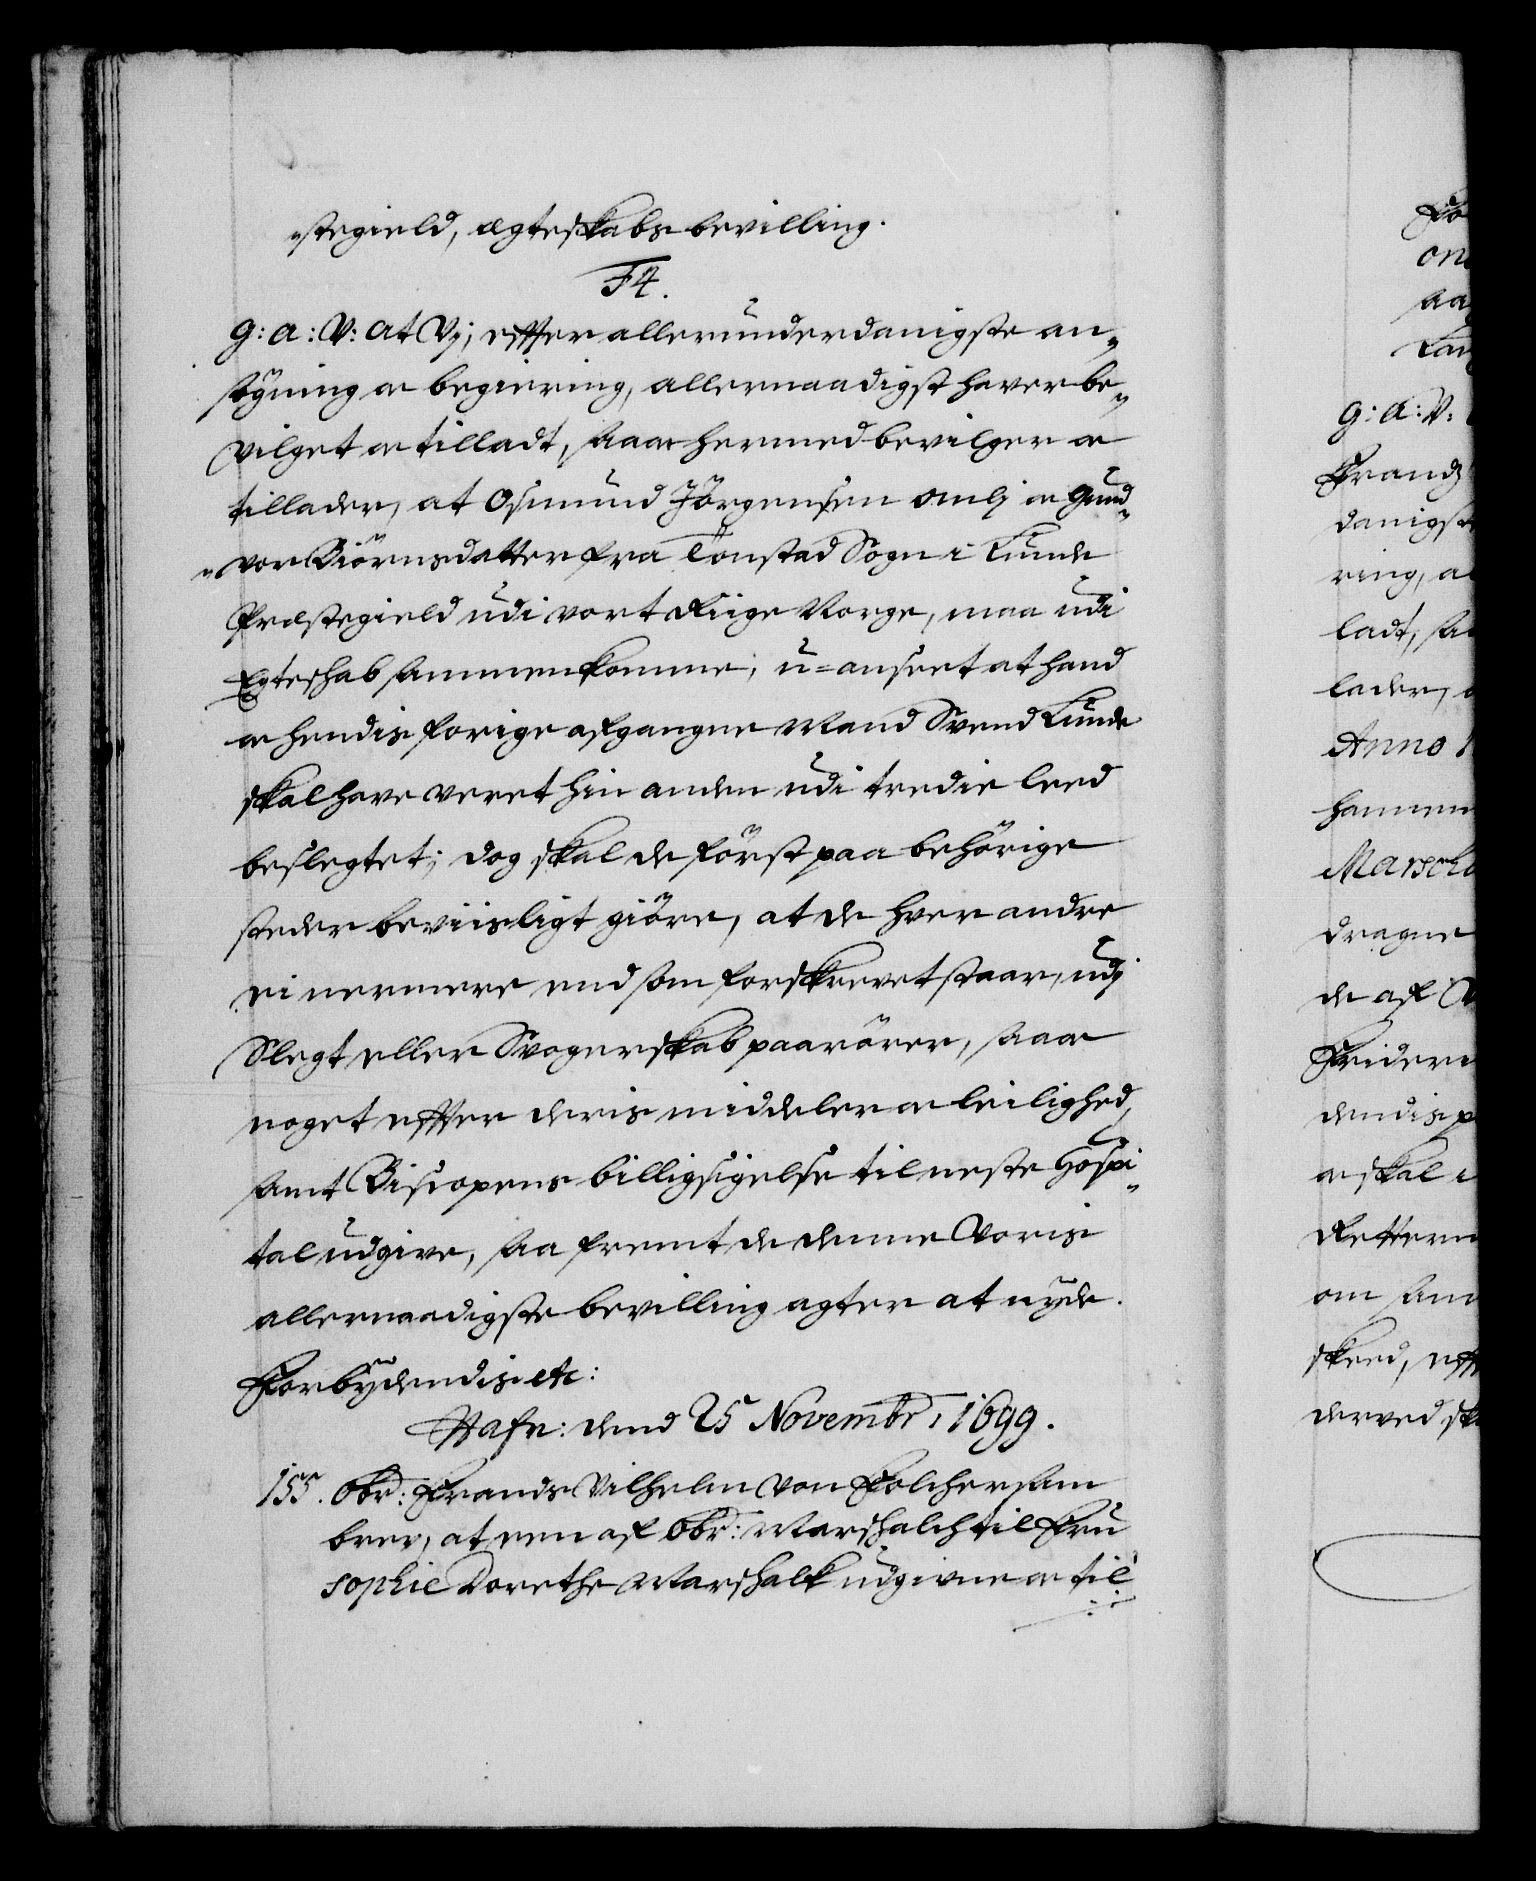 „stegield, ægteskabs bevilling.
F4.
G: A: V: At Vj, effter allerunderdanigste an„
søgning oc begiering, allernaadigst haver be„
vilget oc tilladt, saa oc hermed bevilger oc
tillader, at Osmund Jörgensen Omli oc Gund„
„vor Biörnsdatter fra Tonstad Sogn i Lunde
Præstegield udi vort Riige Norge, maa udi
Egteschab sammenkomme, u=anseet at hand
oc hendis forige afgangne Mand Svend Lunde
skal have veret hin anden udi tredie leed
beslegtet; dog skal de först paa behörige
steder beviisligt giöre, at de hver andre
ei nermere end som forskrevet staar, udj
Slegt eller Svogerskab paarörer, saa oc
noget effter deris middeler oc leilighed,
samt Biscopens billigsigelse til neste Hospi„
tal udgive, saa fremt de denne Voris
allernaadigste bevilling agter at nyde.
Forbydendis etc:
Hafn: dend 25 Novembr, 1699.
155. Obr: Frands Vilhelm von Folchersam
brev, at een af Obr: Marschalch til Fru
Sophie Dorethe Marschalk udgivne oc til
Fo
on
aa
G: A: V:
Frandz
danigst
ring, al
ladt, sa
lader, a
Anno 1
hannem
Marscha
dragne
de af V
Frideri
dendis p
oc skal i
Retten
om sam
skeed, eff
derved sk